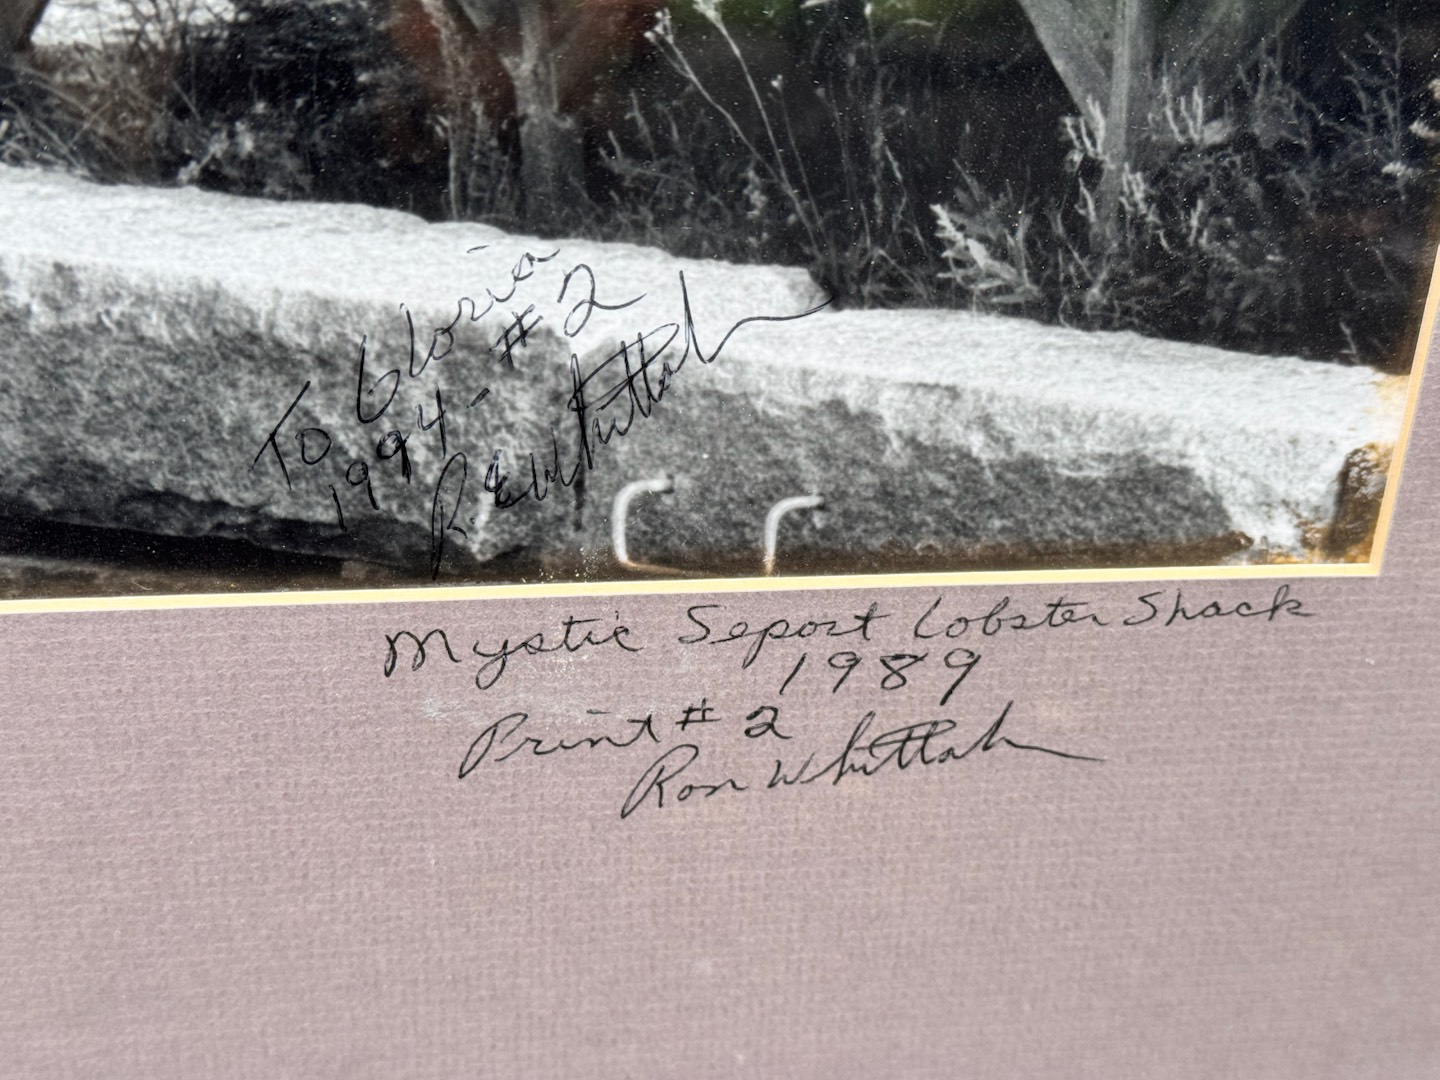 To Gloria
1994 - #2
R. E. Whittah
Mystic Seport Lobster Shack
1989
Print #2
Ron Whittah